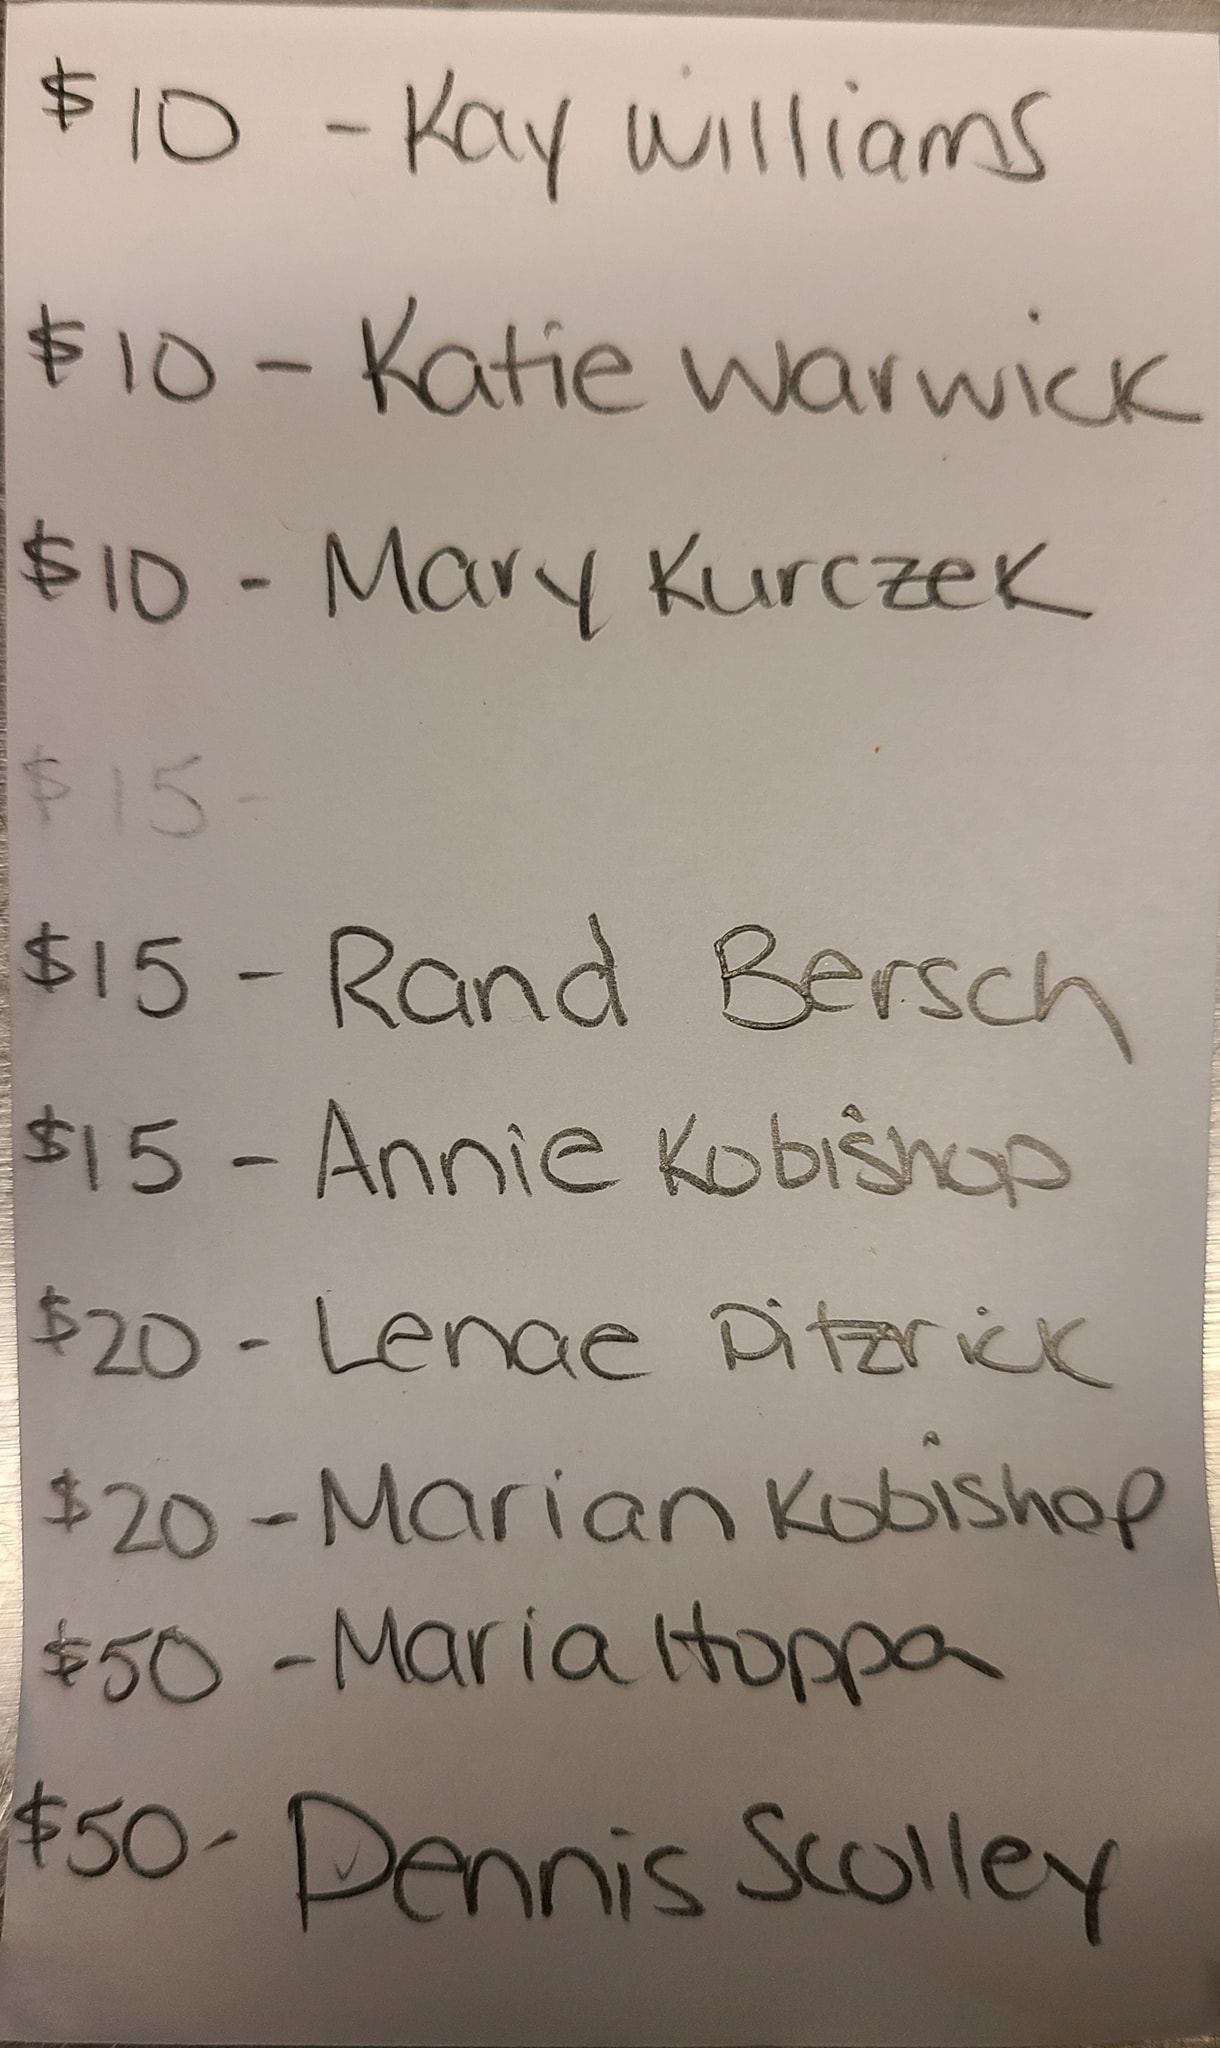 $10 - Kay Williams
$10 - Katie Warwick
$10 - Mary Kurczek
$15 -
$15 - Rand Bersch
$15 - Annie Kobishop
$20 - Lenae Ditzrick
$20 - Marian Kobishop
$50 - Maria Hoppa
$50 - Dennis Scolley